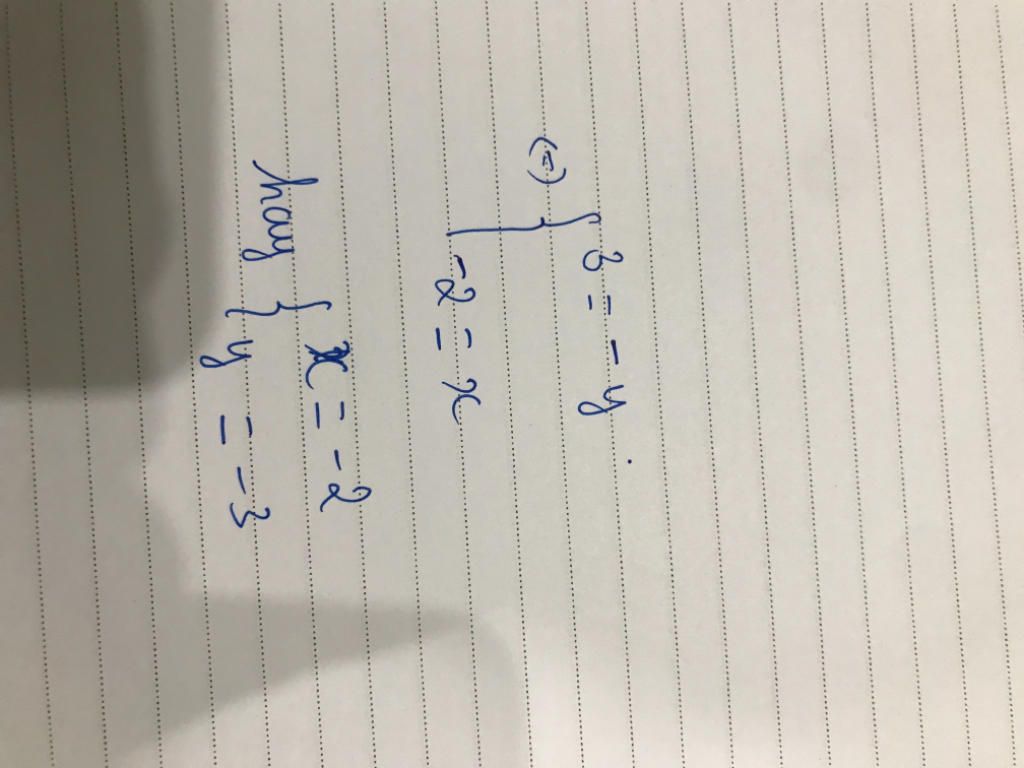 (=) { 3 = - y
-2 = x
hay { x = -2
y = -3